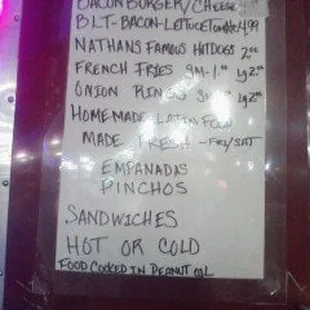 BACON BURGER/CHEESE
BLT-BACON-LETTUCE TOMATO 4.99
NATHANS FAMOUS HOTDOGS 2.00
FRENCH FRIES SM-1.00 LG 2.00
ONION RINGS LG 2.00
HOMEMADE LATIN FOOD
MADE FRESH - FRI/SAT
EMPANADAS
PINCHOS
SANDWICHES
HOT OR COLD
FOOD COOKED IN PEANUT OIL